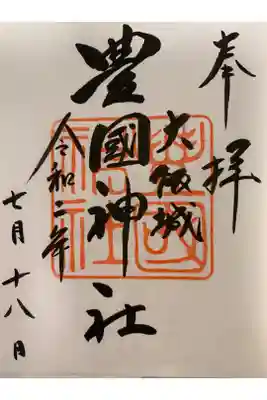 奉拝
大阪城
豊國神社
令和二年
七月十八日